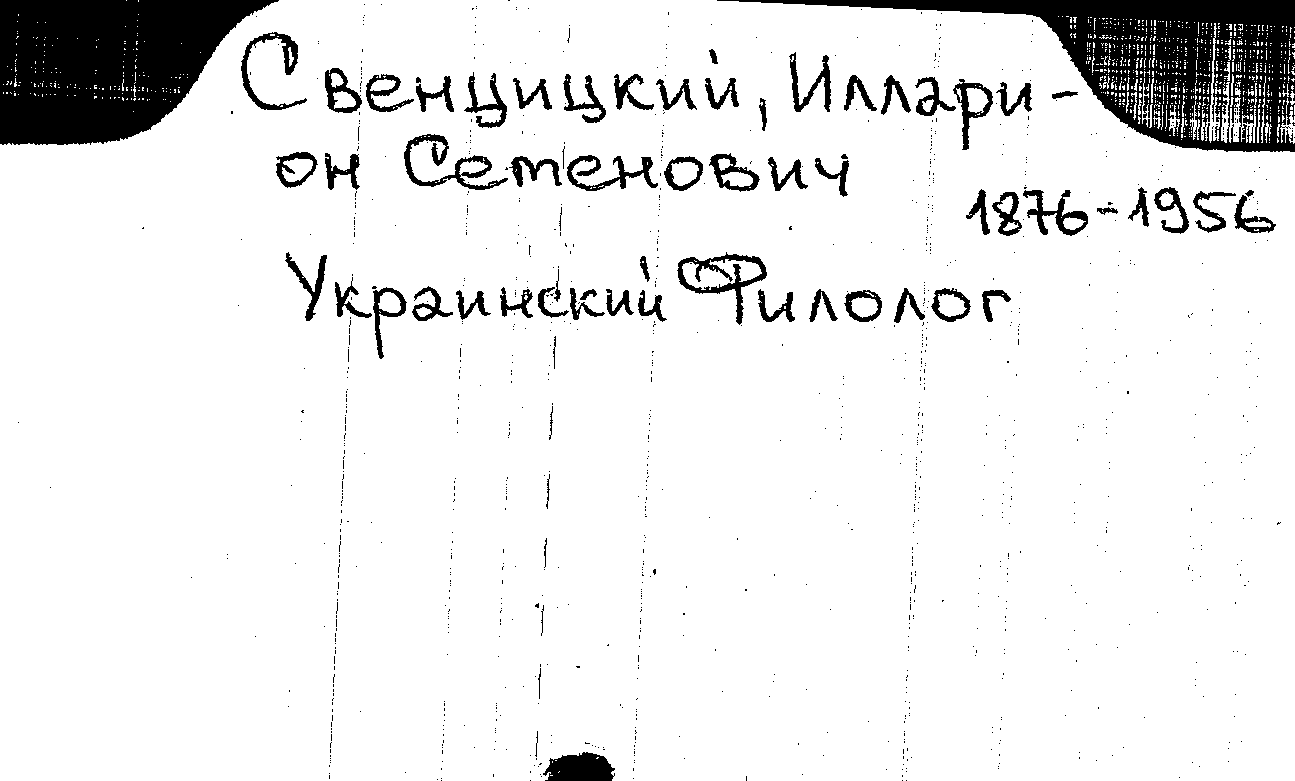 Свенцицкий, Иллари-
он Семенович
1876-1956
Украинский Филолог